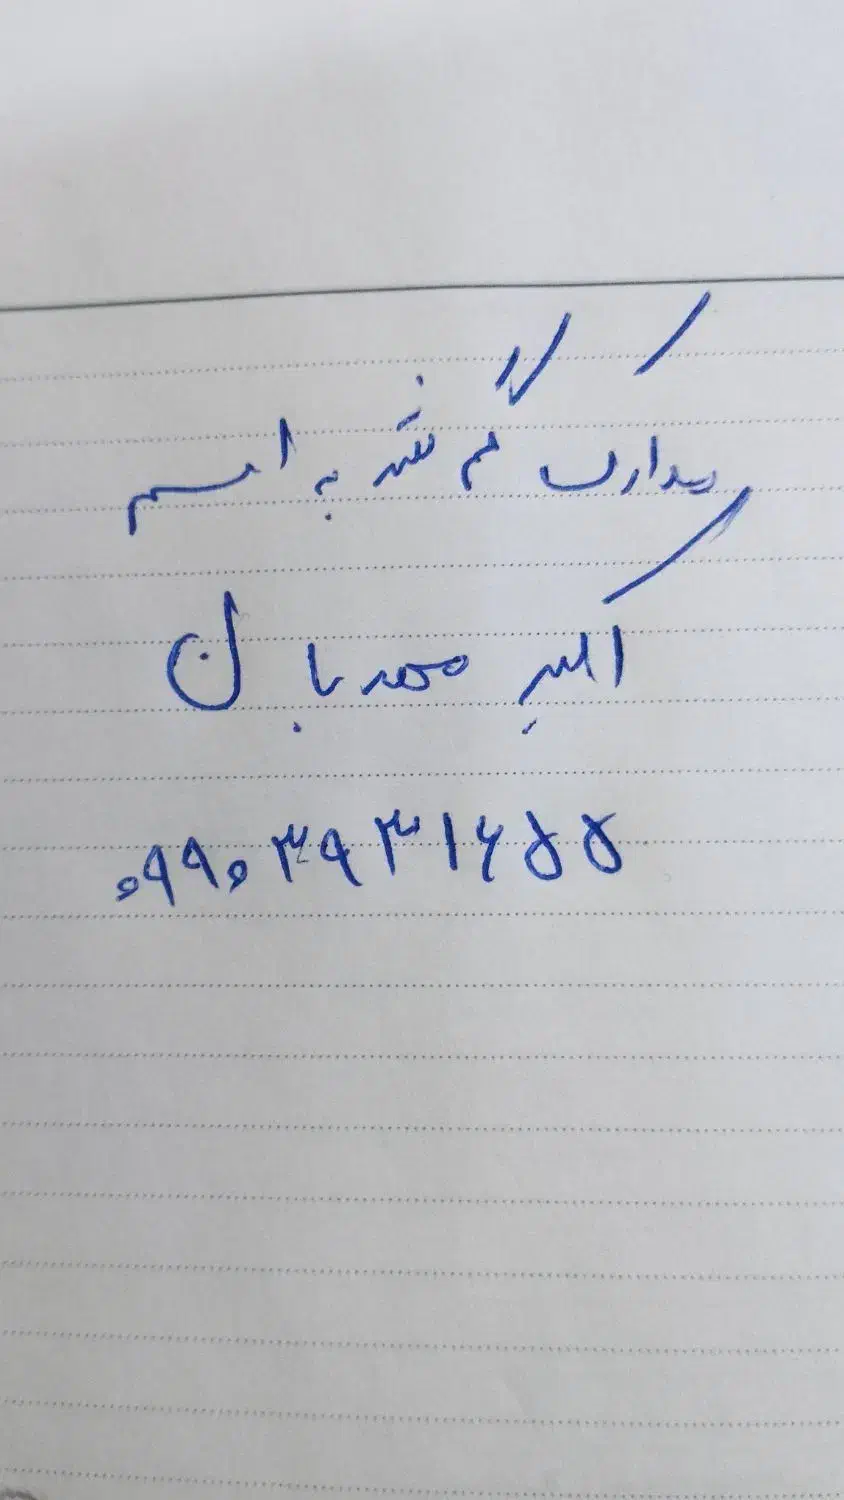 مدارک گم شده به اسم
اکبر محمد بان
۰۹۹۰۳۹۳۱۶۵۵